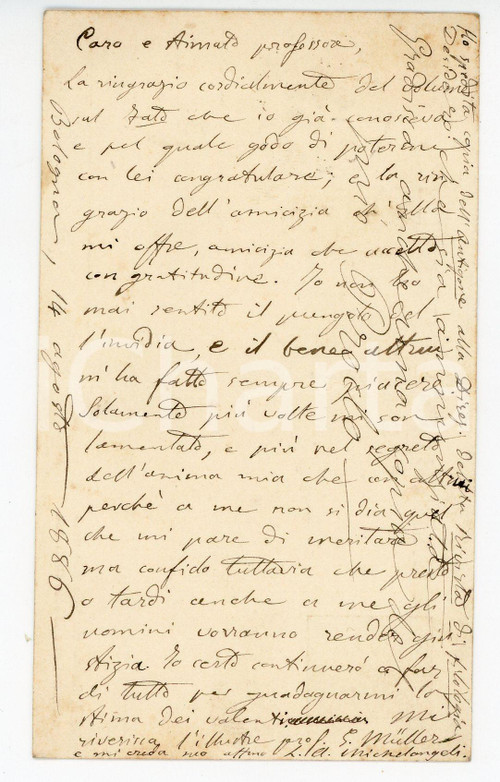 Caro e Aimato professore,
La ringrazio cordialmente del volume
sul che io già conosceva
e pel quale godo di potermene
con lei congratulare; e la rin
grazio dell'amicizia ch'ella
mi offre, amicizia che accetto
con gratitudine. Io non ho
mai sentito il pungolo del
l'invidia, e il bene altrui
mi ha fatto sempre piacere.
Solamente più volte mi son
lamentato, e più nel segreto
dell'anima mia che con altrui
perchè a me non si dia quel
che mi pare di meritare
ma confido tuttavia che presto
o tardi anche a me gli
uomini vorranno render giu
stizia. Io certo continuerò a far
di tutto per guadagnarmi la
stima dei valenti Mi
riverisca l'illustre prof. E. Müller
e mi creda suo affmo L. A. Michelangeli.
Bologna, 14 agosto 1886
Ho spedita copia dell'Antigone alla Direz. della Rivista di filologia
Desidero che sia
Charta